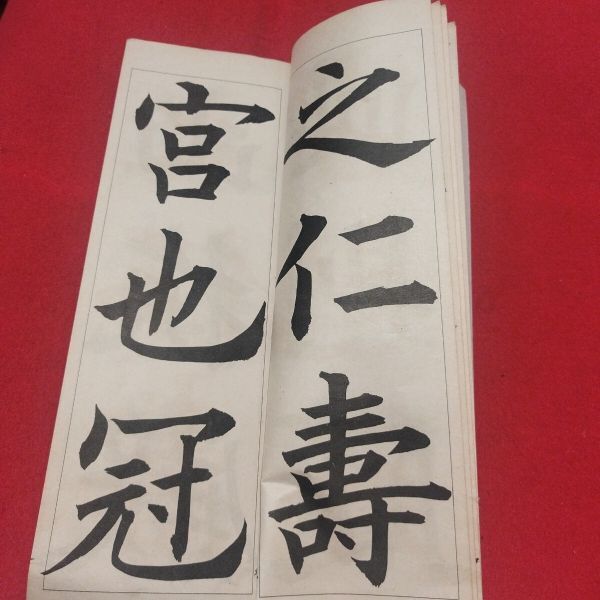 之仁壽
宮也冠